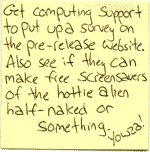 Get computing support
to put up a survey on
the pre-release website.
Also see if they can
make free screensavers
of the hottie alien
half-naked or
something. Yowza!